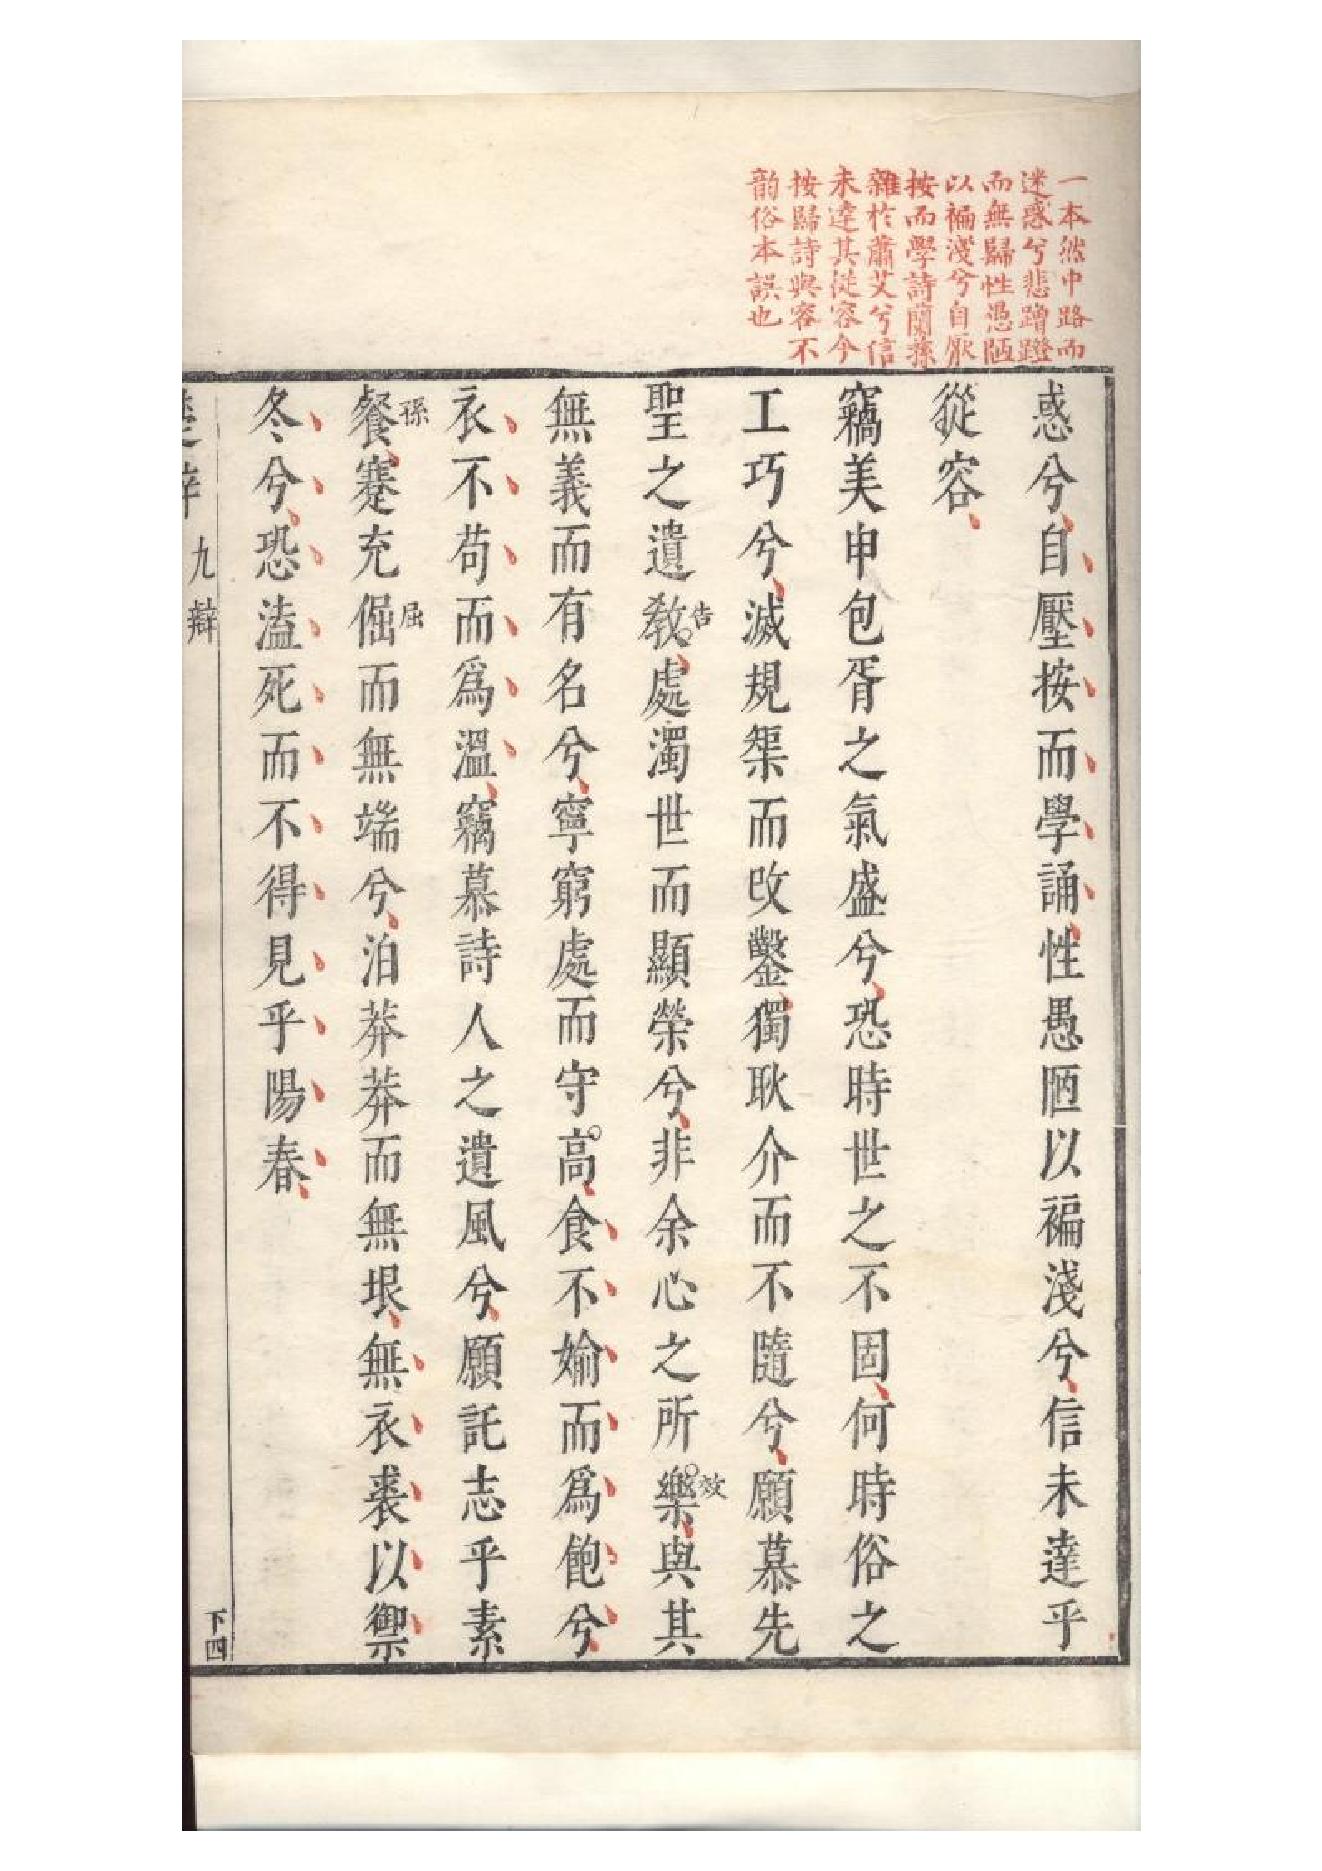 一本然中路而
迷惑兮悲蹭蹬
而無歸性愚陋
以褊淺兮自厭
按而學詩蘭蓀
雜於蕭艾兮信
未達其從容今
按歸詩與容不
韵俗本誤也
惑兮自壓按而學誦性愚陋以褊淺兮信未達乎
從容
竊美申包胥之氣盛兮恐時世之不固何時俗之
工巧兮滅規榘而改鑿獨耿介而不隨兮願慕先
聖之遺教處濁世而顯榮兮非余心之所樂與其
告
效
無義而有名兮寧窮處而守高食不媮而爲飽兮
衣不苟而爲溫竊慕詩人之遺風兮願託志乎素
餐蹇充倔而無端兮泊莽莽而無垠無衣裘以禦
孫
屈
冬兮恐溘死而不得見乎陽春
楚辭 九辯
下四